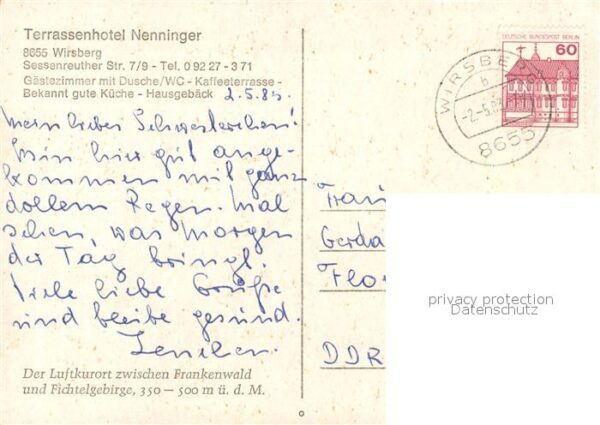 Terrassenhotel Nenninger
8655 Wirsberg
Sessenreuther Str. 7/9 - Tel. 0 92 27 - 3 71
Gästezimmer mit Dusche/WC - Kaffeeterrasse -
Bekannt gute Küche - Hausgebäck
2.5.83.
Mein liebes Schwesterchen!
Bin hier gut ange-
kommen mit ganz
dollem Regen. Mal
sehen, was morgen
der Tag bringt.
Viele liebe Grüße
und bleibe gesund.
Der Luftkurort zwischen Frankenwald
und Fichtelgebirge, 350 – 500 m ü. d. M.
DEUTSCHE BUNDESPOST BERLIN
60
WIRSBERG
b
8655
Frau
Gerda
Flo
DDR
privacy protection
Datenschutz